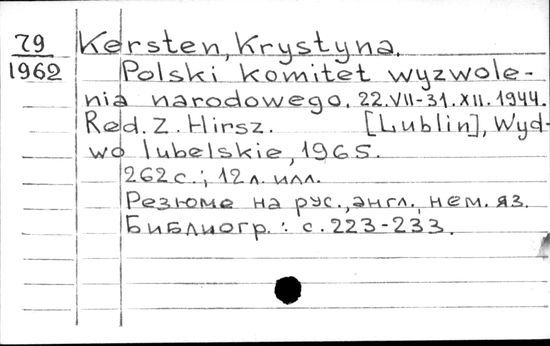 79
1962
Kersten, Krystyna.
Polski komitet wyzwole-
nia narodowego. 22.VII-31.XII.1944.
Red. Z. Hirsz. [Lublin], Wyd-
wo lubelskie, 1965.
262 с.; 12 л. илл.
Резюме на рус., англ., нем. яз.
Библиогр.: с. 223-233.